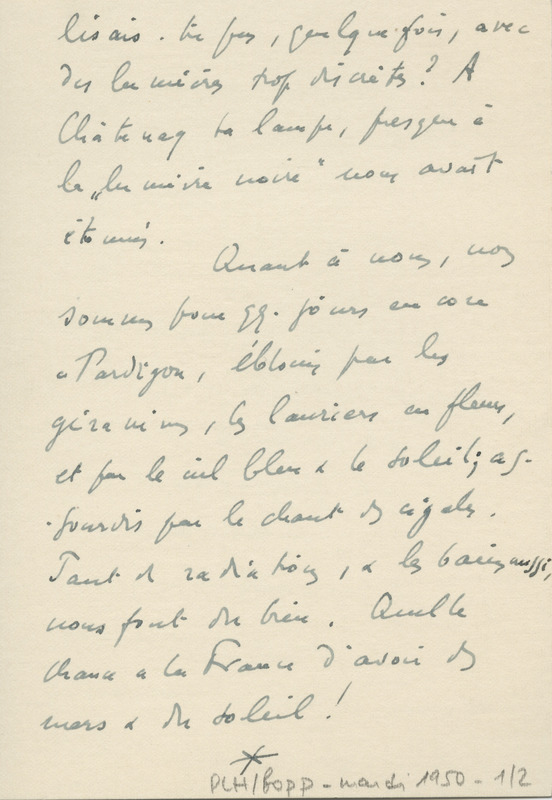 lisais-tu pas, quelquefois, avec
des lumières trop discrètes? A
Châtenay ta lampe, presque à
la „lumière noire" nous avait
étonnés.
Quant à nous, nous
sommes pour qq. jours encore
à Pardigon, éblouis par les
géraniums, les lauriers en fleurs,
et par le ciel bleu & le soleil; as-
-sourdis par le chant des cigales.
Tant de radiations, & les bains aussi,
nous font du bien. Quelle
chance a la France d'avoir des
mers & du soleil!
PLH/Bopp - mardi 1950 - 1/2